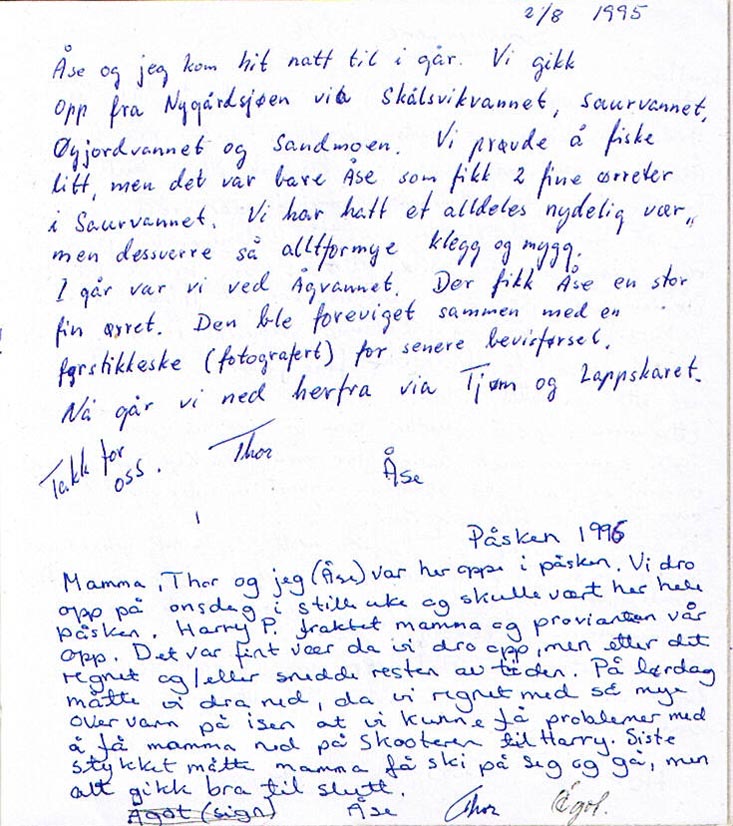 2/8 1995
Åse og jeg kom hit natt til i går. Vi gikk
opp fra Nygårdsjøen via Skålsvikvannet, Saurvannet,
Øyjordvannet og Sandmoen. Vi prøvde å fiske
litt, men det var bare Åse som fikk 2 fine ørreter
i Saurvannet. Vi har hatt et alldeles nydelig vær,,
men dessverre så altformye klegg og mygg.
I går var vi ved Ågvannet. Der fikk Åse en stor
fin ørret. Den ble foreviget sammen med en
fyrstikkeske (fotografert) for senere bevisførsel.
Nå går vi ned herfra via Tjøm og Lappskaret.
Takk for
oss.
Thor
Åse
Påsken 1996
Mamma, Thor og jeg (Åse) var her oppe i påsken. Vi dro
opp på onsdag i stille uke og skulle vært her hele
påsken. Harry P. fraktet mamma og provianten vår
opp. Det var fint vær da vi dro opp, men etter det
regnet og/eller snødde resten av tiden. På lørdag
måtte vi dra ned, da vi regnet med så mye
overvann på isen at vi kunne få problemer med
å få mamma ned på skooteren til Harry. Siste
stykket måtte mamma få ski på seg og gå, men
alt gikk bra til slutt.
Ågot (sign) Åse Thor Ågot.